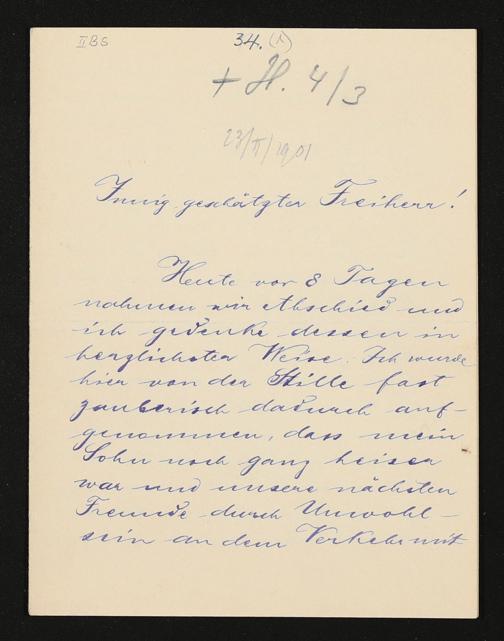 II B 6
34. (1)
+ H. 4/3
23/II/1901
Innig geschätzter Freiherr!
Heute vor 8 Tagen
nahmen wir Abschied und
ich gedenke dessen in
herzlichster Weise. Ich wurde
hier von der Stille fast
zauberisch dadurch auf-
genommen, dass mein
Sohn noch ganz heiser
war und unsere nächsten
Freunde durch Unwohl-
sein an dem Verkehr mit